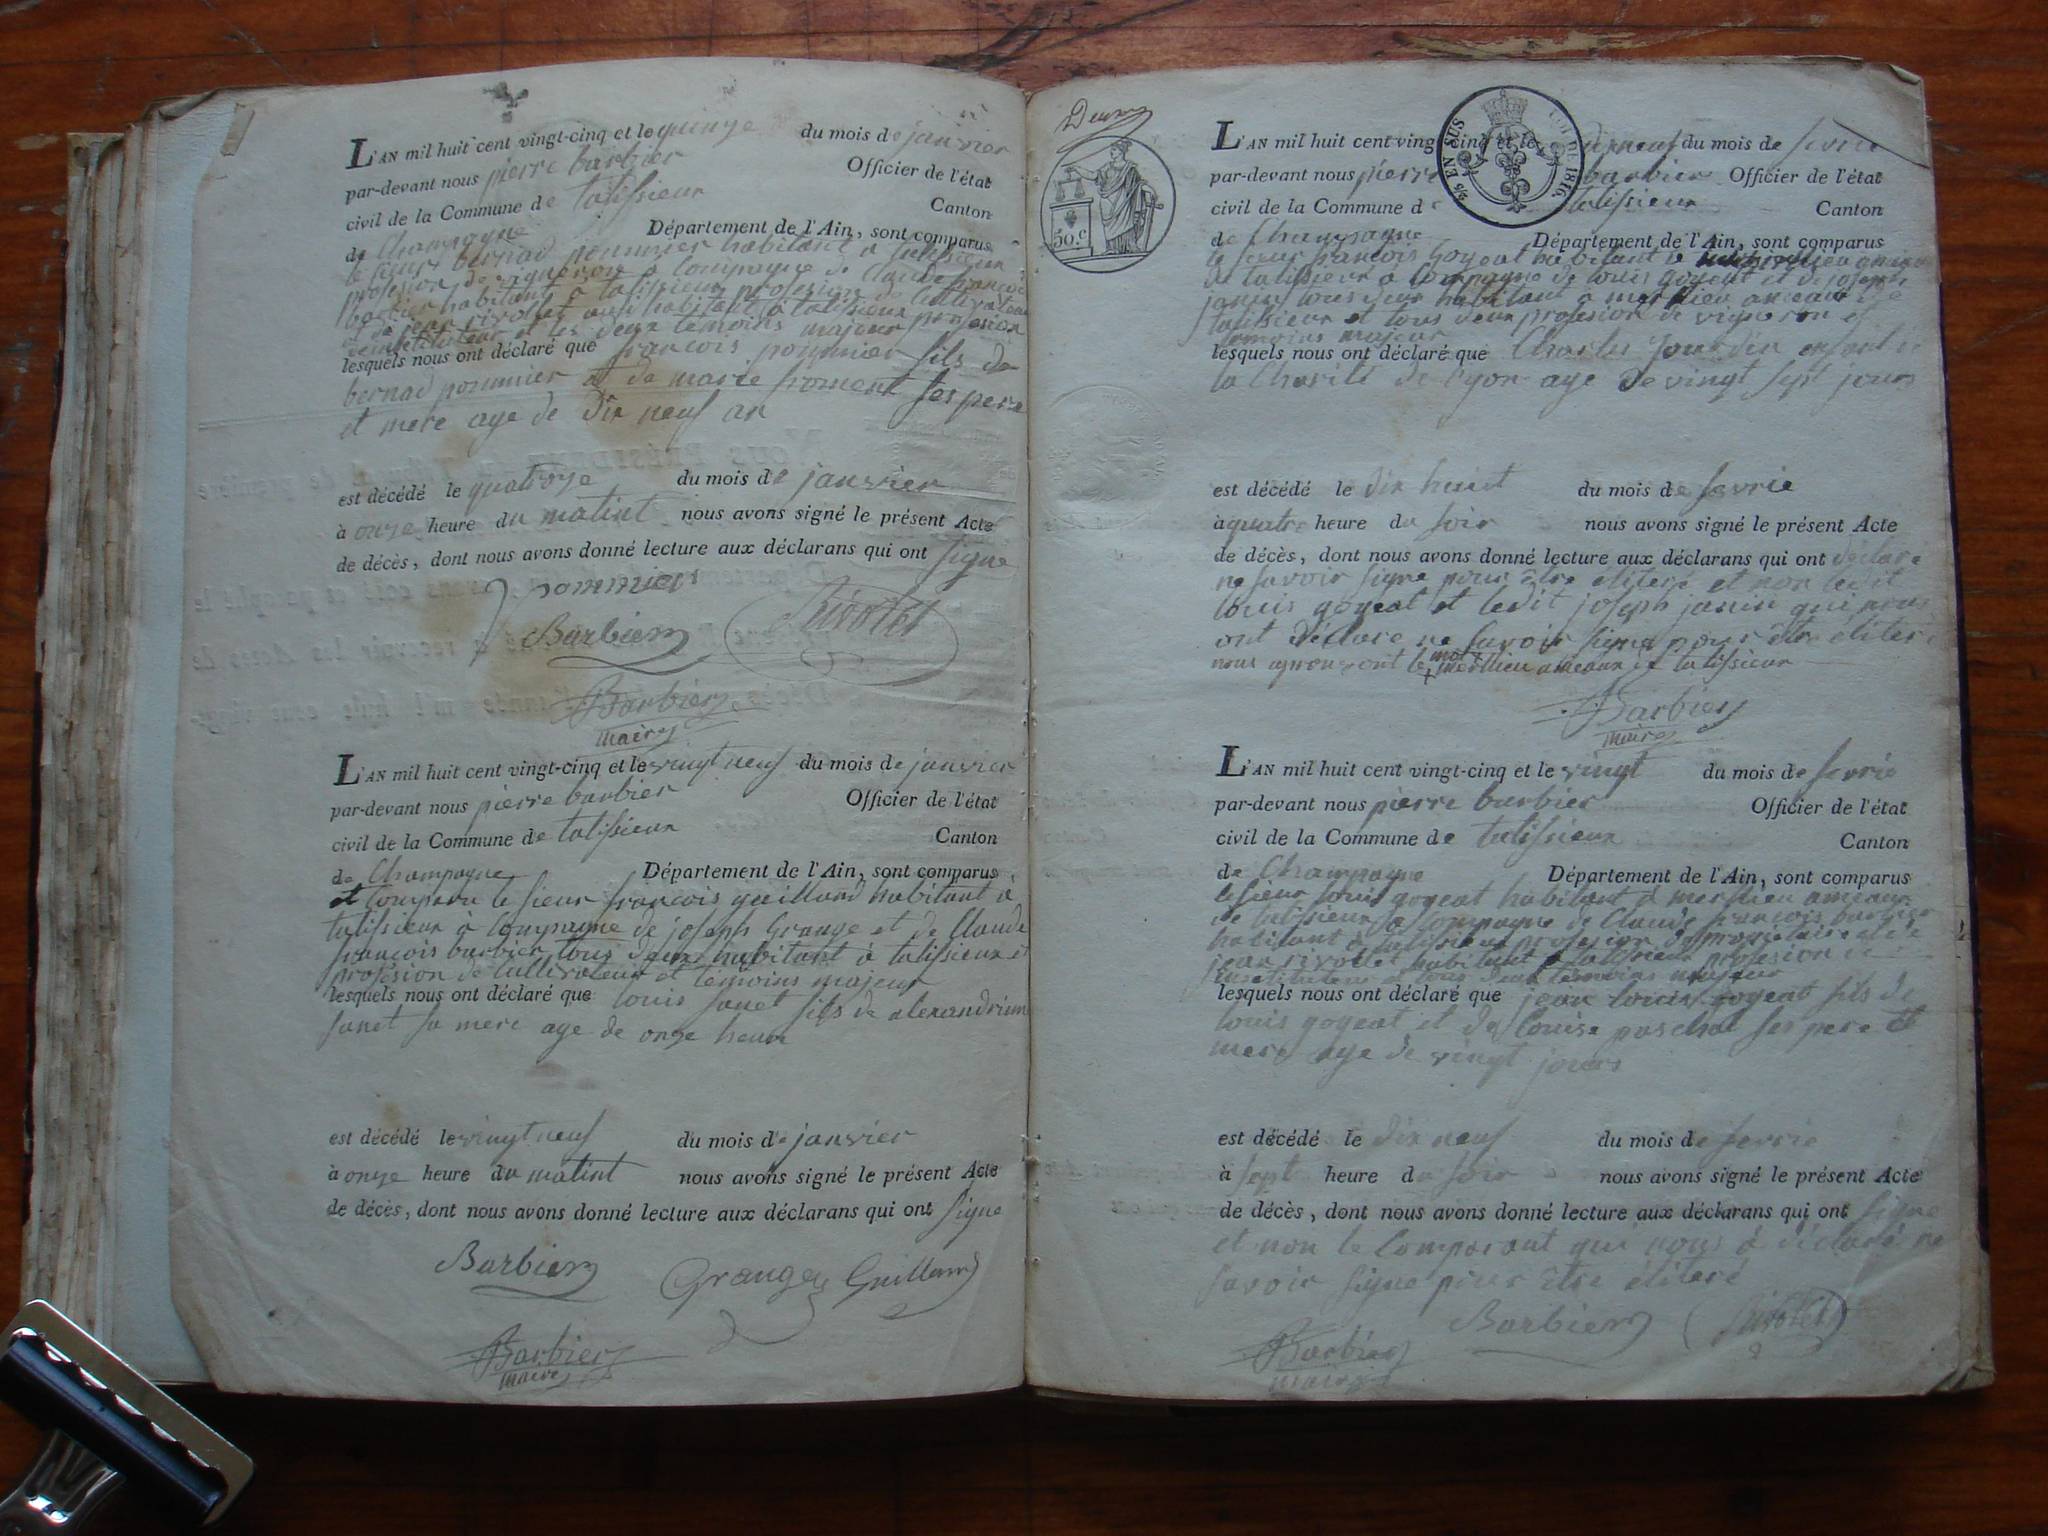 L'AN mil huit cent vingt-cinq et le quinze du mois de janvier
par-devant nous pierre barbier Officier de l'état
civil de la Commune de talissieux Canton
de Champagne Département de l'Ain, sont comparus
le sieur bernad pommier habitant à talissieux
profesion de vigneron à Compagne de Claude francois
barbier habitant à talissieux profesion de Cultivateur
et de jean rivollet ausi habitant à talissieux profesion
et les deux temoins majeur
lesquels nous ont déclaré que francois pommier fils de
bernad pommier et de marie froment ses pere
et mere age de dix neuf an
est décédé le quatorze du mois de janvier
à onze heure du matint nous avons signé le présent Acte
de décès, dont nous avons donné lecture aux déclarans qui ont signe
pommier
Barbier Rivolet
Barbier
maire
L'AN mil huit cent vingt-cinq et le vingt neuf du mois de janvier
par-devant nous pierre barbier Officier de l'état
civil de la Commune de talissieux Canton
de Champagne Département de l'Ain, sont comparus
et Comparu le sieur francois guilland habitant à
talissieux à Compagne de joseph Grange et de Claude
francois barbier tous deux habitant à talissieux et
profesion de Cultivateur et temoins majeur
lesquels nous ont déclaré que louis janet fils de alexandrine
janet sa mere age de onze heur
est décédé le vingt neuf du mois de janvier
à onze heure du matint nous avons signé le présent Acte
de décès, dont nous avons donné lecture aux déclarans qui ont signe
Barbier Grange Guilland
Barbier
maire
50.c
2/5 EN SUS
LOI DE 1816.
L'AN mil huit cent vingt-cinq et le dix neuf du mois de fevrie
par-devant nous pierre barbier Officier de l'état
civil de la Commune de talissieux Canton
de Champagne Département de l'Ain, sont comparus
le sieur francois Gojeat habitant le
de talissieux à Compagne de louis gojeat et de joseph
janin tous deux habitant a merllieu ameaux de
talissieux et tous deux profesion de vigneron et
temoins majeur
lesquels nous ont déclaré que Charles Jourdin enfant de
la Charité de lyon age de vingt sept jours
est décédé le dix huit du mois de fevrie
à quatre heure du soir nous avons signé le présent Acte
de décès, dont nous avons donné lecture aux déclarans qui ont déclaré
ne savoir signe pour être éliteré et non ledit
louis gojeat et ledit joseph janin qui nous
ont déclare ne savoir signe pour être éliteré
nous le mot merllieu ameaux de talissieux
Barbier
maire
L'AN mil huit cent vingt-cinq et le vingt du mois de fevrie
par-devant nous pierre barbier Officier de l'état
civil de la Commune de talissieux Canton
de Champagne Département de l'Ain, sont comparus
le sieur louis gojeat habitant à merllieu ameaux
de talissieux à Compagne de Claude francois barbier
habitant à talissieux profesion de propriétaire et de
jean rivollet habitant à talissieux profesion de
instituteur et tous deux temoins majeur
lesquels nous ont déclaré que jean louis gojeat fils de
louis gojeat et de louise paschal ses pere et
mere age de vingt jours
est décédé le dix neuf du mois de fevrie
à sept heure du soir nous avons signé le présent Acte
de décès, dont nous avons donné lecture aux déclarans qui ont signe
et non le Comparant qui nous à déclaré ne
savoir signe pour être éliteré
Barbier Rivolet
Barbier
maire